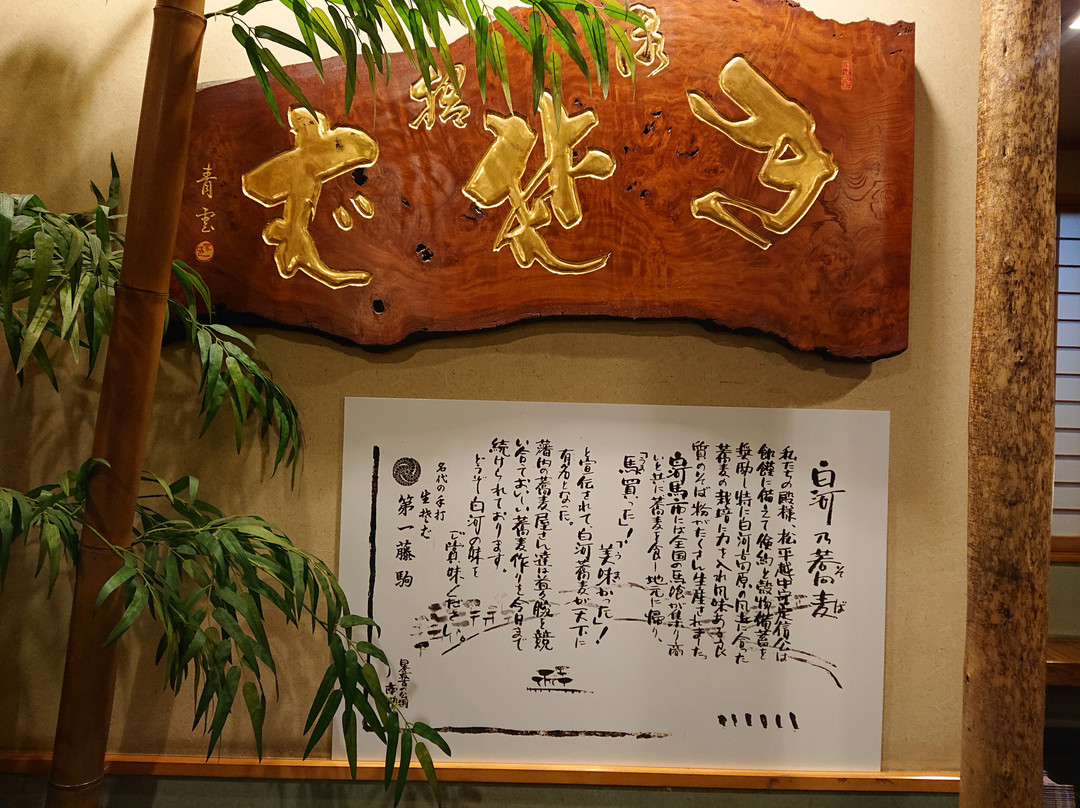 青雲
白河乃蕎麦
そば
私たちの殿様、松平越中守定信公は
飢饉に備えて倹約と穀物備蓄を
奨励し特に白河高原の風土に合った
蕎麦の栽培に力を入れ風味ある良
質のそば粉がたくさん生産されました。
白河馬市には全国の馬喰が集り商
いと共に蕎麦を食し地元に帰り、
「馬買った」!
美味かった」!
と宣伝されて、白河蕎麦が天下に
有名となった。
藩内の蕎麦屋さん達は腕を競
い合っておいしい蕎麦作りを今日まで
続けられております。
どうぞ白河の味を
ご賞味ください。
名代の手打
生そば
第一藤駒